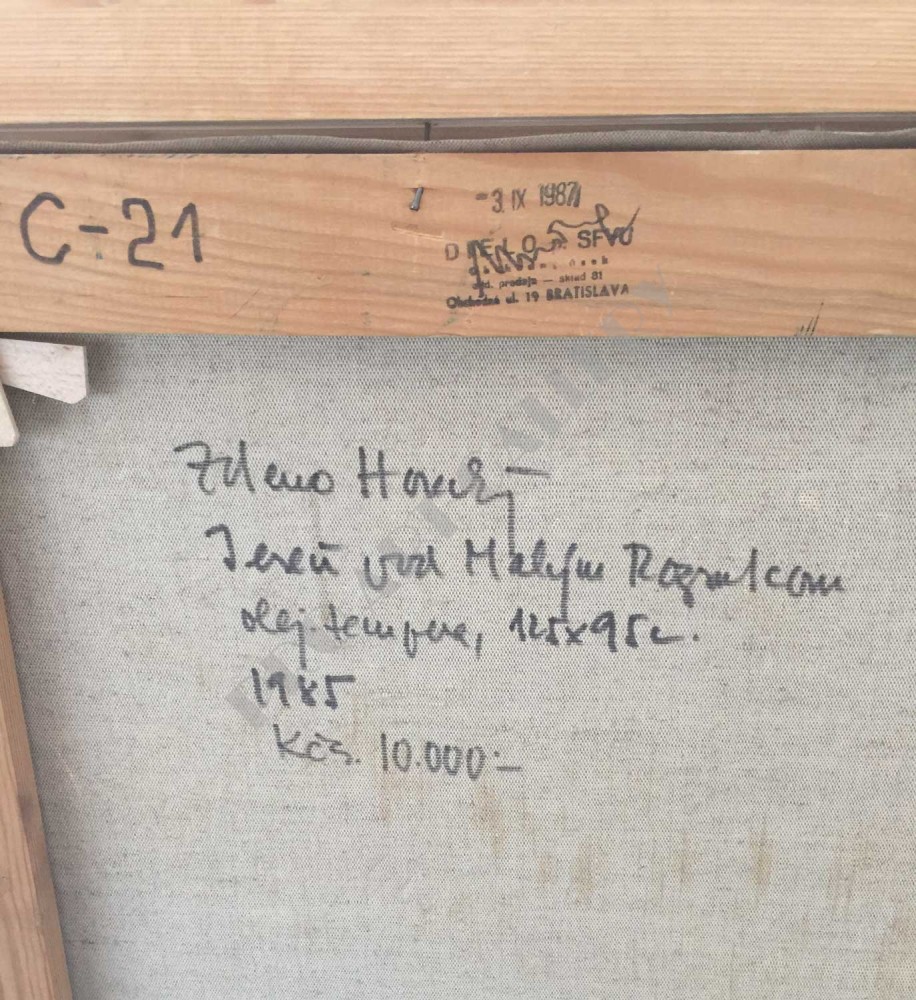 C-21
-3. IX 1987
DIELO SFVU
odd. predaja — sklad 81
Obchodná ul. 19 BRATISLAVA
Zdeno Horecký
Jeseň pod Malým Rozsutcom
olej-tempera, 125x95c.
1985
Kčs. 10.000:-